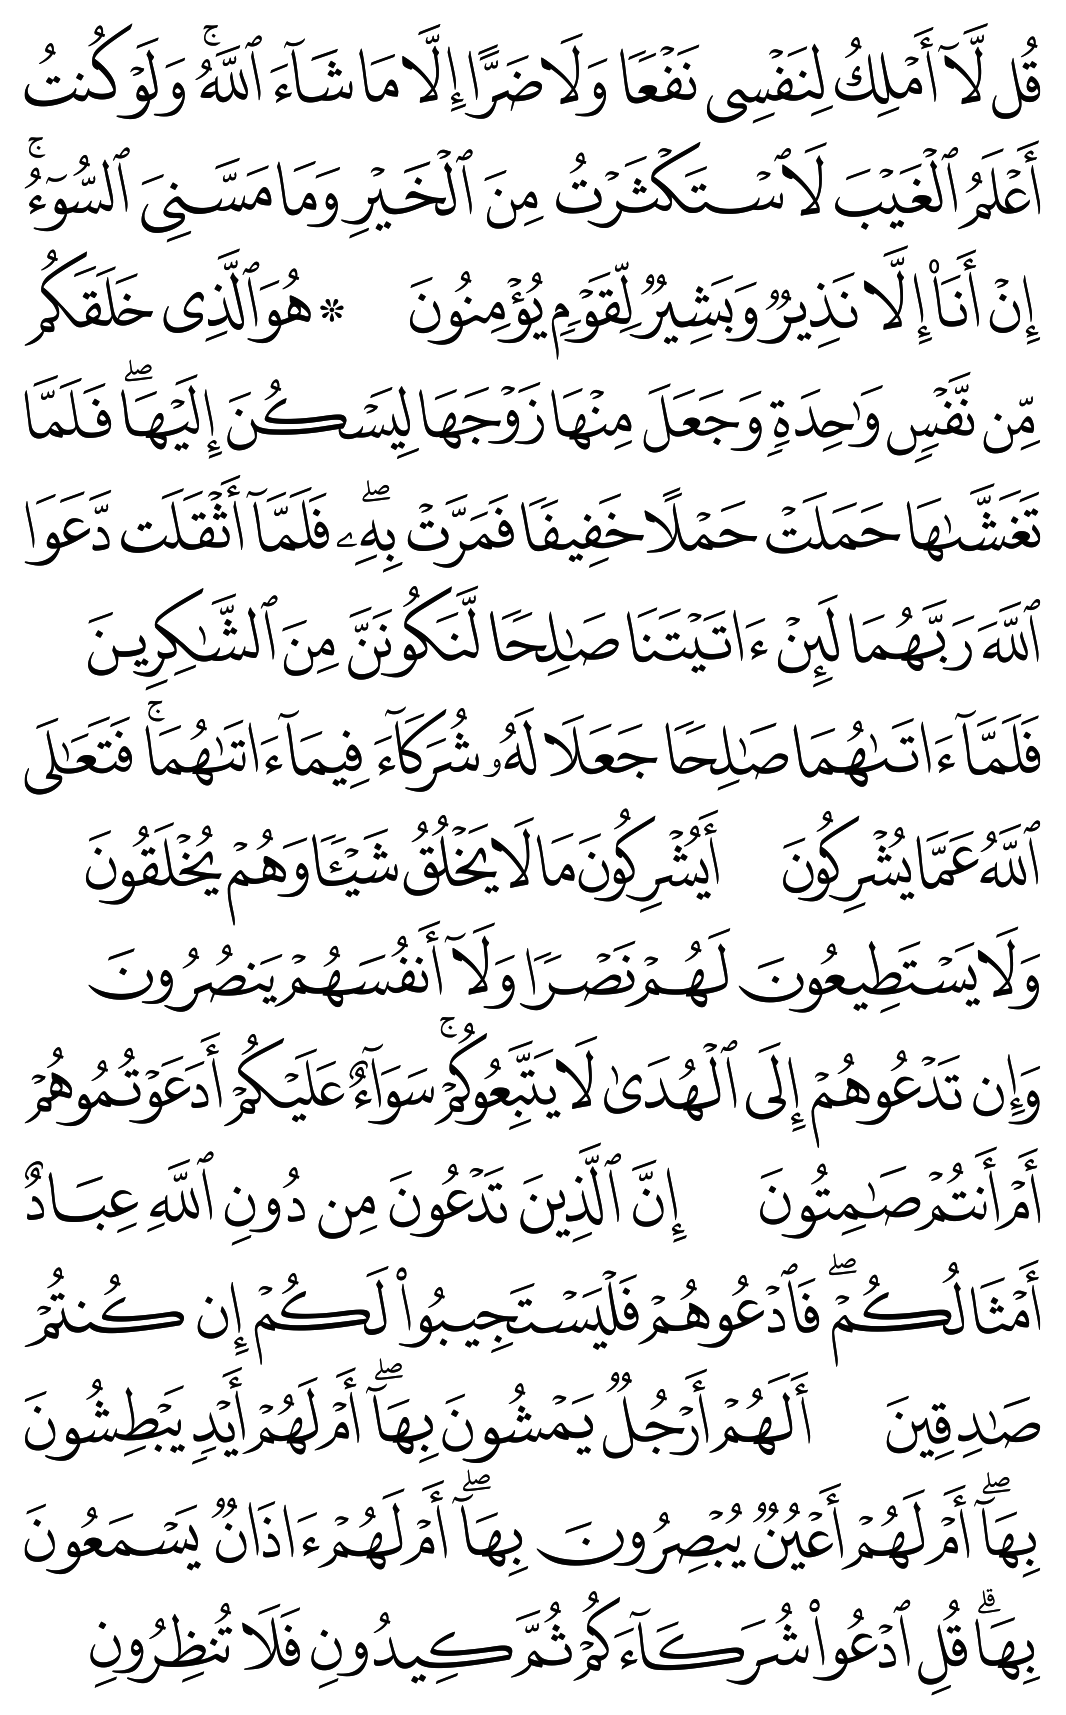 قُل لَّآ أَمْلِكُ لِنَفْسِى نَفْعًا وَلَا ضَرًّا إِلَّا مَا شَآءَ ٱللَّهُ ۚ وَلَوْ كُنتُ
أَعْلَمُ ٱلْغَيْبَ لَٱسْتَكْثَرْتُ مِنَ ٱلْخَيْرِ وَمَا مَسَّنِىَ ٱلسُّوٓءُ ۚ
إِنْ أَنَا۠ إِلَّا نَذِيرٌ وَبَشِيرٌ لِّقَوْمٍ يُؤْمِنُونَ * هُوَ ٱلَّذِى خَلَقَكُم
مِّن نَّفْسٍ وَٰحِدَةٍ وَجَعَلَ مِنْهَا زَوْجَهَا لِيَسْكُنَ إِلَيْهَا ۖ فَلَمَّا
تَغَشَّىٰهَا حَمَلَتْ حَمْلًا خَفِيفًا فَمَرَّتْ بِهِۦ ۖ فَلَمَّآ أَثْقَلَت دَّعَوَا
ٱللَّهَ رَبَّهُمَا لَئِنْ ءَاتَيْتَنَا صَٰلِحًا لَّنَكُونَنَّ مِنَ ٱلشَّٰكِرِينَ
فَلَمَّآ ءَاتَىٰهُمَا صَٰلِحًا جَعَلَا لَهُۥ شُرَكَآءَ فِيمَآ ءَاتَىٰهُمَا ۚ فَتَعَٰلَى
ٱللَّهُ عَمَّا يُشْرِكُونَ أَيُشْرِكُونَ مَا لَا يَخْلُقُ شَيْـًٔا وَهُمْ يُخْلَقُونَ
وَلَا يَسْتَطِيعُونَ لَهُمْ نَصْرًا وَلَآ أَنفُسَهُمْ يَنصُرُونَ
وَإِن تَدْعُوهُمْ إِلَى ٱلْهُدَىٰ لَا يَتَّبِعُوكُمْ ۚ سَوَآءٌ عَلَيْكُمْ أَدَعَوْتُمُوهُمْ
أَمْ أَنتُمْ صَٰمِتُونَ إِنَّ ٱلَّذِينَ تَدْعُونَ مِن دُونِ ٱللَّهِ عِبَادٌ
أَمْثَالُكُمْ ۖ فَٱدْعُوهُمْ فَلْيَسْتَجِيبُوا۟ لَكُمْ إِن كُنتُمْ
صَٰدِقِينَ أَلَهُمْ أَرْجُلٌ يَمْشُونَ بِهَآ ۖ أَمْ لَهُمْ أَيْدٍ يَبْطِشُونَ
بِهَآ ۖ أَمْ لَهُمْ أَعْيُنٌ يُبْصِرُونَ بِهَآ ۖ أَمْ لَهُمْ ءَاذَانٌ يَسْمَعُونَ
بِهَا ۗ قُلِ ٱدْعُوا۟ شُرَكَآءَكُمْ ثُمَّ كِيدُونِ فَلَا تُنظِرُونِ